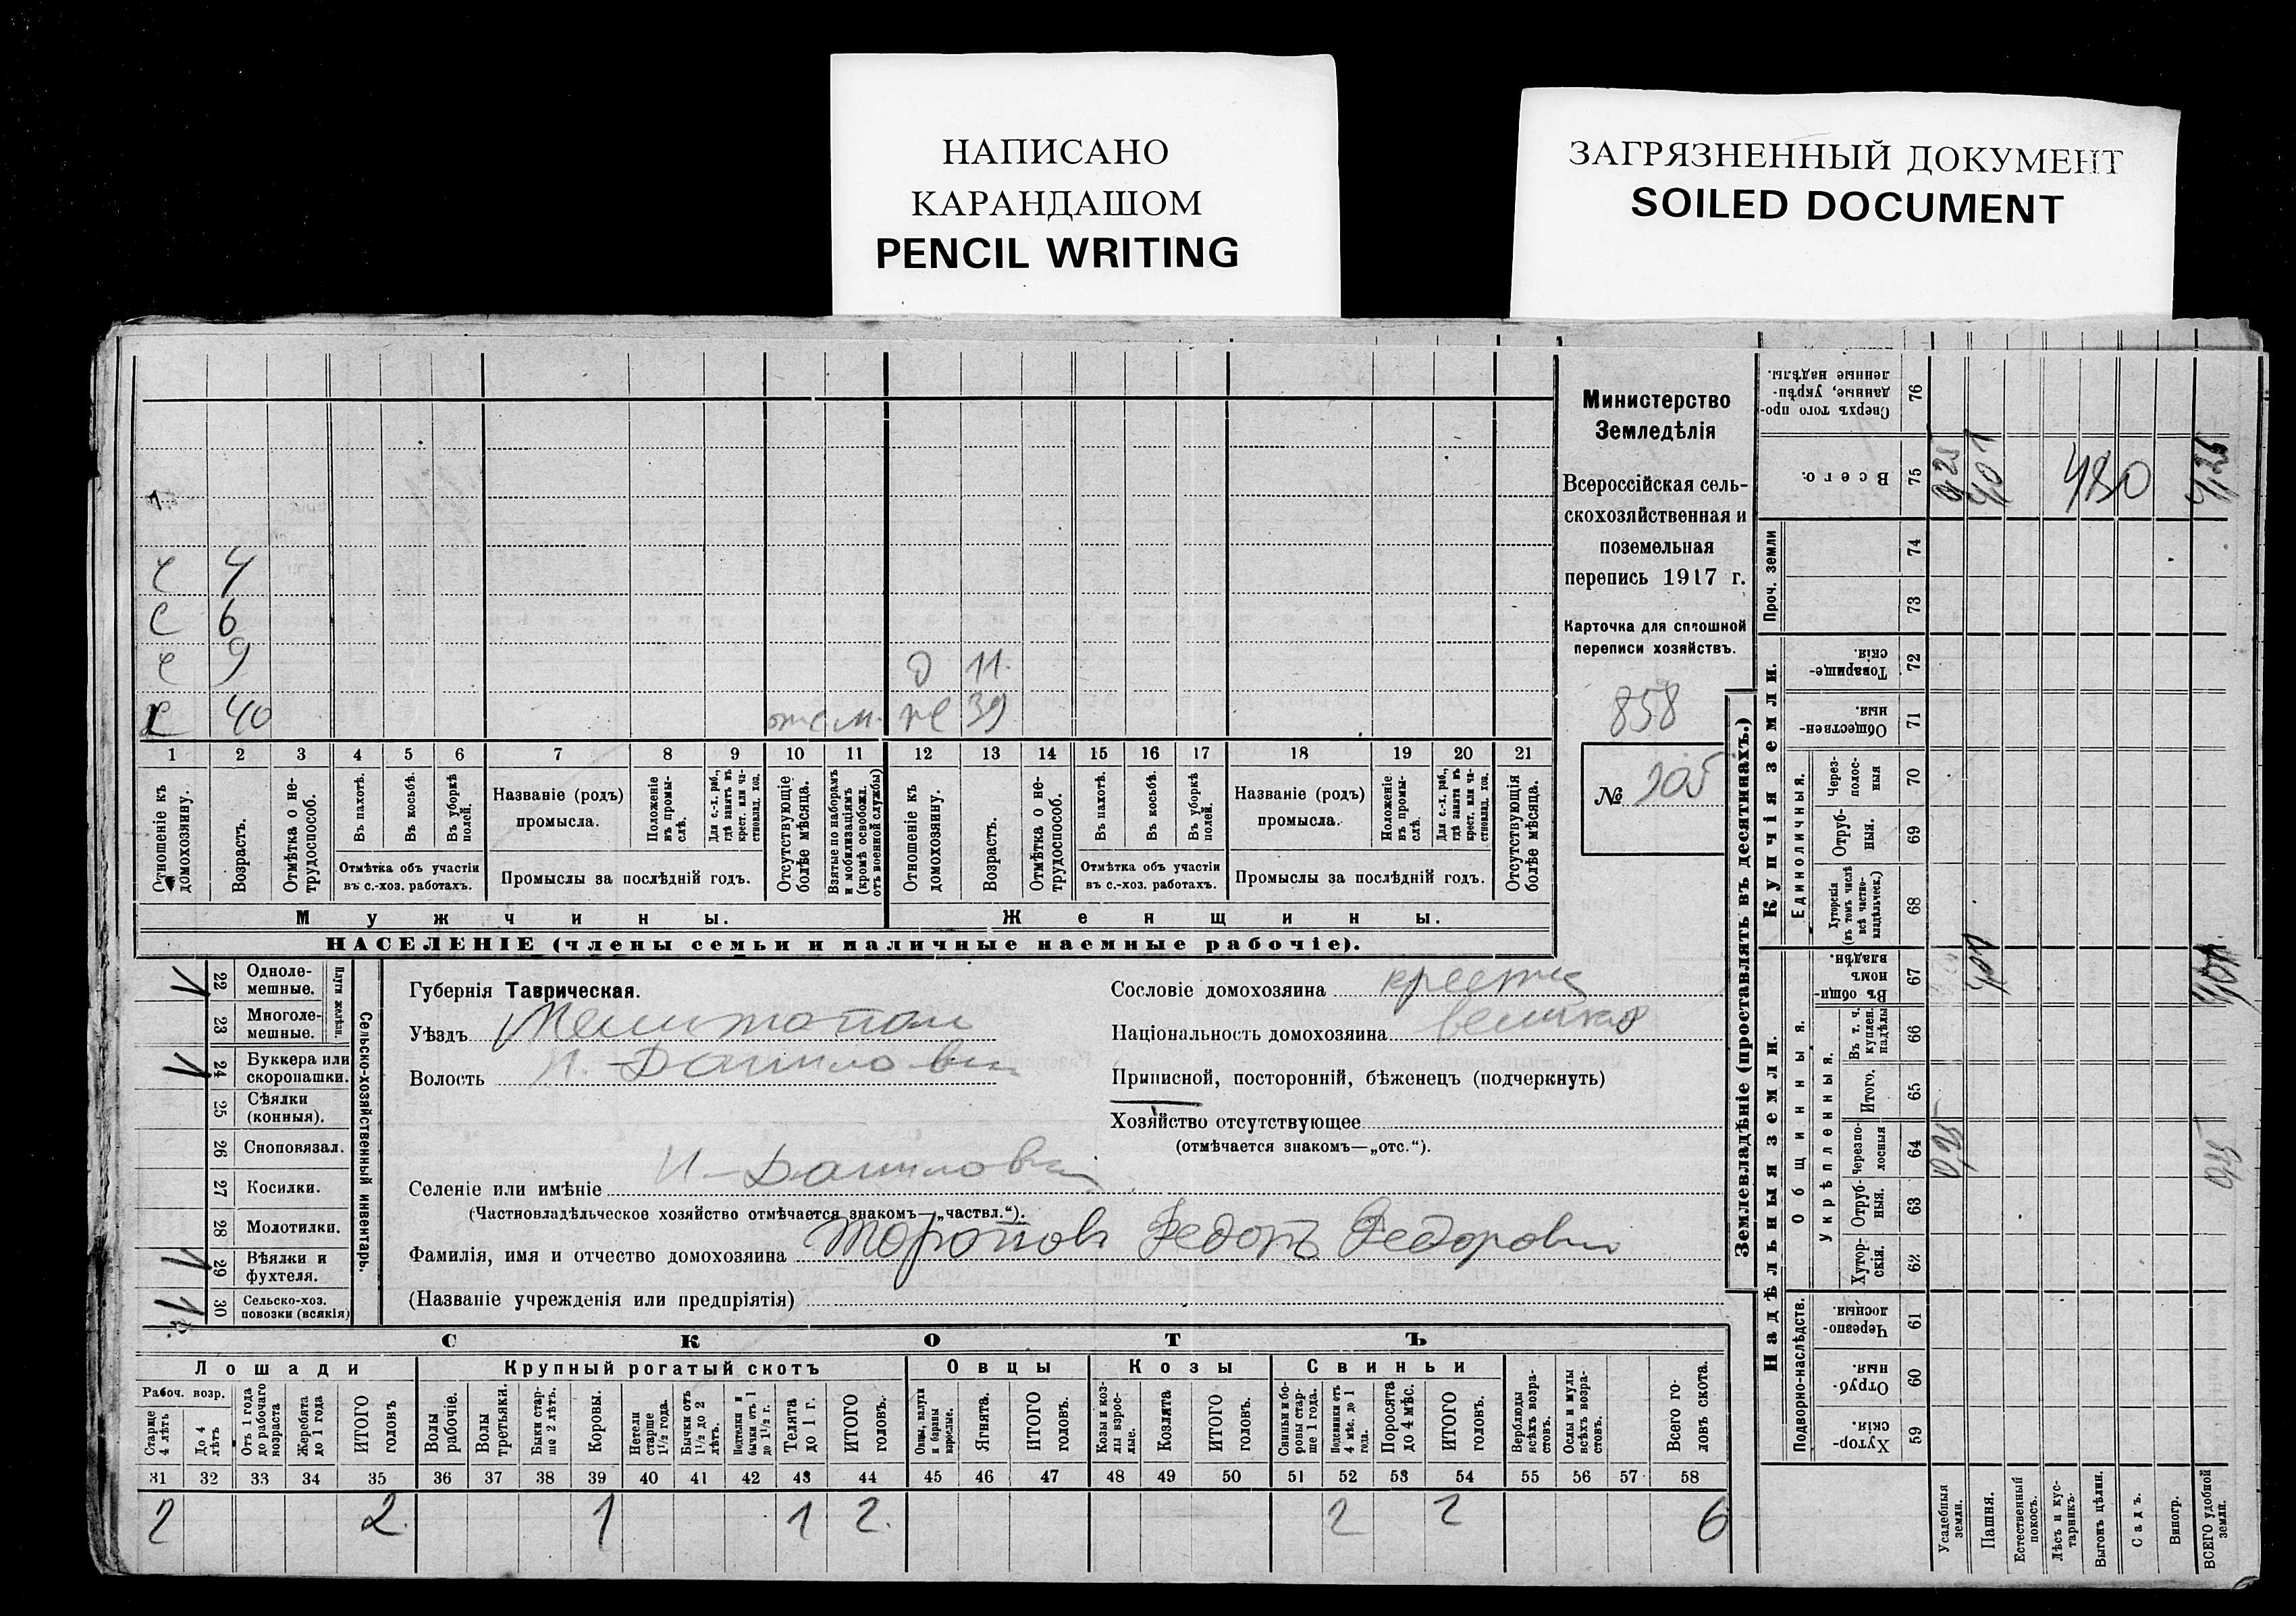 НАПИСАНО
КАРАНДАШОМ
PENCIL WRITING
ЗАГРЯЗНЕННЫЙ ДОКУМЕНТ
SOILED DOCUMENT
с 4
с 6
с 9 д 11.
40 39
1 2 3 4 5 6 7 8 9 10 11 12 13 14 15 16 17 18 19 20 21
Отношеніе къ домохозяину.
Возрастъ.
Отмѣтка о нетрудоспособ.
Въ пахотѣ.
Въ косьбѣ.
Въ уборкѣ полей.
Отмѣтка объ участіи въ с.-хоз. работахъ.
Названіе (родъ) промысла.
Положеніе въ промыслѣ.
Для с.-х. раб., гдѣ занятъ въ крест. или частновлад. хоз.
Промыслы за послѣдній годъ.
Отсутствующіе болѣе мѣсяца.
Взятые по наборамъ и мобилизаціямъ (кромѣ освобожд. отъ военной службы)
Отношеніе къ домохозяину.
Возрастъ.
Отмѣтка о нетрудоспособ.
Въ пахотѣ.
Въ косьбѣ.
Въ уборкѣ полей.
Отмѣтка объ участіи въ с.-хоз. работахъ.
Названіе (родъ) промысла.
Положеніе въ промыслѣ.
Для с.-х. раб., гдѣ занята въ крест. или частновлад. хоз.
Промыслы за послѣдній годъ.
Отсутствующія болѣе мѣсяца.
Мужчины. Женщины.
НАСЕЛЕНІЕ (члены семьи и наличные наемные рабочіе).
Министерство
Земледѣлія
Всероссійская сель-
скохозяйственная и
поземельная
перепись 1917 г.
Карточка для сплошной
переписи хозяйствъ.
858
№ 205
22 Однолемешные. 1
23 Многолемешные.
Плуги желѣзн.
24 Буккера или скоропашки. 1
25 Сѣялки (конныя).
26 Сноповязал.
27 Косилки.
28 Молотилки.
29 Вѣялки и фухтеля. 1
30 Сельско-хоз. повозки (всякія) 1
Сельско-хозяйственный инвентарь.
Губернія Таврическая.
Уѣздъ Мелитопол
Волость Н. Даниловк
Сословіе домохозяина крестья
Національность домохозяина великор
Приписной, посторонній, бѣженецъ (подчеркнуть)
Хозяйство отсутствующее
(отмѣчается знакомъ—„отс.“).
Селеніе или имѣніе Н-Даниловк
(Частновладѣльческое хозяйство отмѣчается знакомъ—„частвл.“).
Фамилія, имя и отчество домохозяина Торопов Федотъ Федорович
(Названіе учрежденія или предпріятія)
СКОТЪ
Лошади Крупный рогатый скотъ Овцы Козы Свиньи
Рабоч. возр.
Старше 4 лѣтъ
До 4 лѣтъ
Отъ 1 года до рабочаго возраста
Жеребята до 1 года
ИТОГО головъ
Волы рабочіе.
Волы третьяки.
Быки старше 2 лѣтъ.
Коровы.
Нетели старше 1½ года.
Бычки отъ 1½ до 2 лѣтъ.
Подтелки и бычки отъ 1 до 1½ г.
Телята до 1 г.
ИТОГО головъ.
Овцы, валухи и бараны взрослые.
Ягнята.
ИТОГО головъ.
Козы и козлы взрослые.
Козлята
ИТОГО головъ.
Свиньи и боровы старше 1 года.
Подсвинки отъ 4 мѣс. до 1 года.
Поросята до 4 мѣс.
ИТОГО головъ.
Верблюды всѣхъ возрастовъ.
Ослы и мулы всѣхъ возрастовъ.
Всего головъ скота.
31 32 33 34 35 36 37 38 39 40 41 42 43 44 45 46 47 48 49 50 51 52 53 54 55 56 57 58
2 2. 1 1 2. 2 2 6
Землевладѣніе (проставлять въ десятинахъ.)
Надѣльныя земли. Купчія земли. Проч. земли
Подворно-наслѣдств. Общинныя. Единоличныя.
Укрѣпленныя.
59 Хуторскія.
60 Отрубныя.
61 Черезполосныя.
62 Хуторскія.
63 Отрубныя.
64 Черезполосныя
65 Итого.
66 Въ т. ч. куплен. надѣлы
67 Въ общинномъ владѣн.
68 Хуторскія (въ томъ числѣ всѣ частновладѣльческ.)
69 Отрубныя.
70 Черезполосныя
71 Общественныя.
72 Товарищескія.
73
74
75 Всего.
76 Сверхъ того проданные, укрѣпленные надѣлы.
Усадебныя земли. 0,25 0,25
Пашня. 401 401
Естественный покосъ.
Лѣсъ и кустарникъ.
Выгонъ цѣлин.
Садъ.
Виногр.
ВСЕГО удобной земли. 4,26